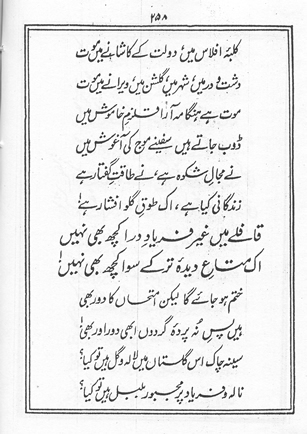 ۲۵۸
کلبۂ افلاس میں دولت کے کاشانے میں موت
دشت و در میں شہر میں گلشن میں ویرانے میں موت
موت ہے ہنگامہ آرا قلزمِ خاموش میں
ڈوب جاتے ہیں سفینے موج کی آغوش میں
نے مجالِ شکوہ ہے، نے طاقتِ گفتار ہے
زندگانی کیا ہے، اک طوقِ گلو افشار ہے!
قافلے میں غیرِ فریادِ درا کچھ بھی نہیں
اک متاعِ دیدۂ تر کے سوا کچھ بھی نہیں!
ختم ہو جائے گا لیکن امتحاں کا دور بھی
ہیں پسِ نُہ پردۂ گردوں ابھی دور اور بھی!
سینہ چاک اس گلستاں میں لالہ و گل ہیں تو کیا؟
نالہ و فریاد پر مجبور بلبل ہیں تو کیا؟